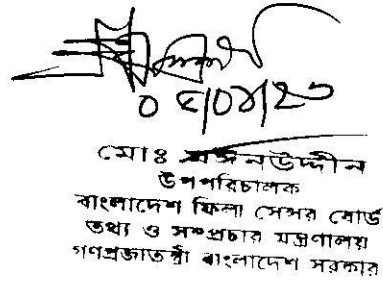 মোঃ মঈনউদ্দীন
উপপরিচালক
বাংলাদেশ ফিল্ম সেন্সর বোর্ড
তথ্য ও সম্প্রচার মন্ত্রণালয়
গণপ্রজাতন্ত্রী বাংলাদেশ সরকার